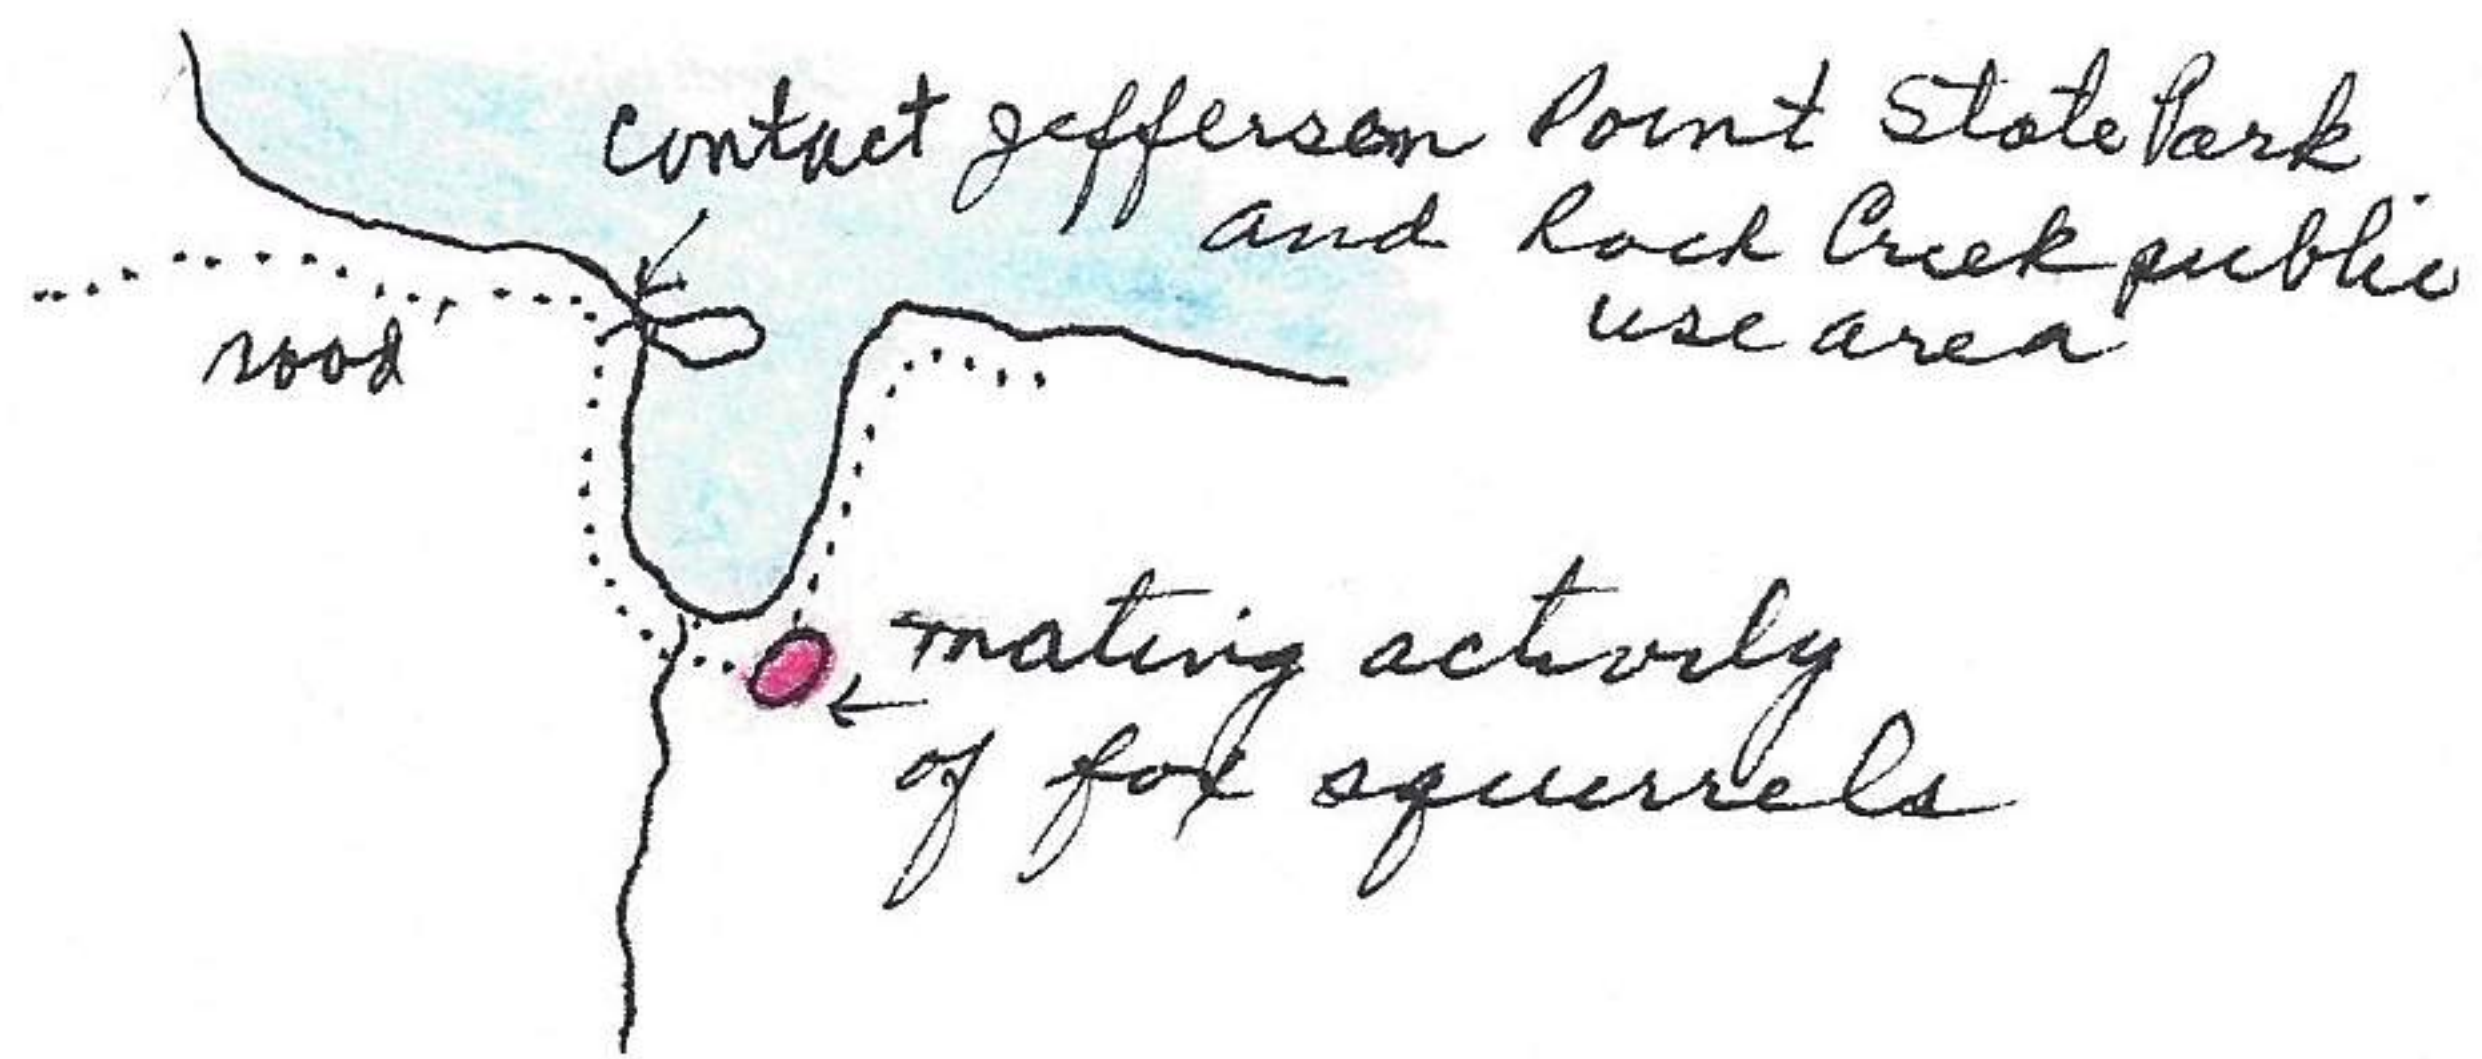 contact Jefferson Point State Park
and Rock Creek public
use area
road
mating activity
of fox squirrels